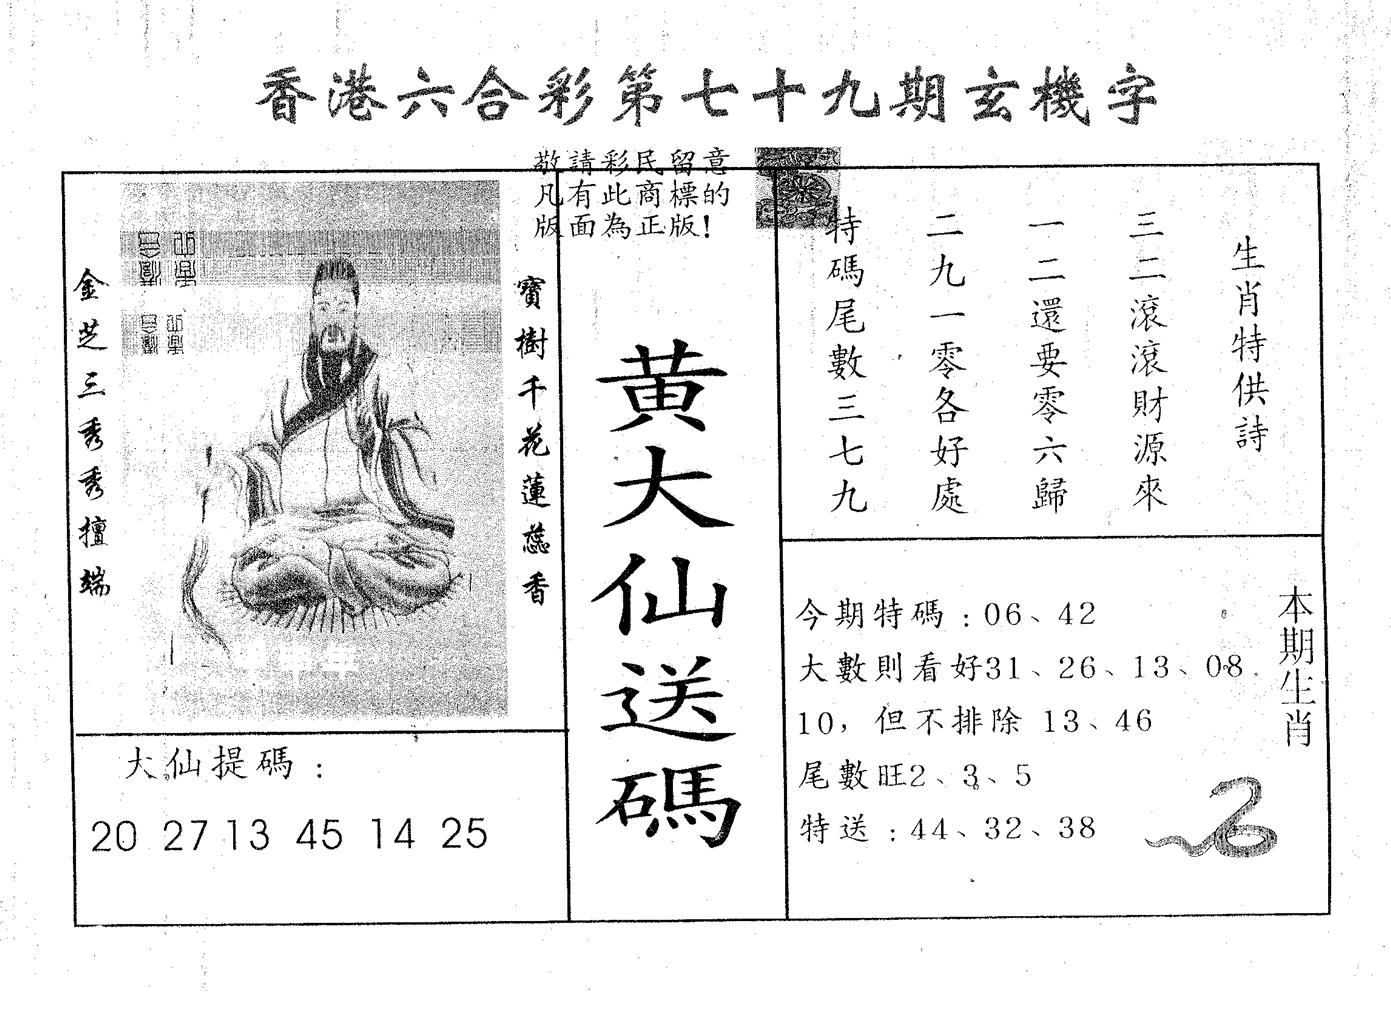 香港六合彩第七十九期玄機字
敬請彩民留意
凡有此商標的
版面為正版！
金芝三秀秀擅端
寶樹千花蓮蕊香
大仙提碼：
20 27 13 45 14 25
黃大仙送碼
生肖特供詩
三二滾滾財源來
一二還要零六歸
二九一零各好處
特碼尾數三七九
本期生肖
今期特碼：06、42
大數則看好31、26、13、08
10，但不排除 13、46
尾數旺2、3、5
特送：44、32、38